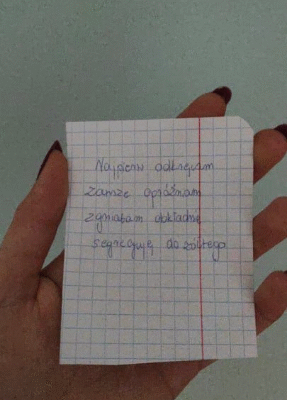 Najpierw odkręcam
zawsze opróżniam
zgniatam dokładnie
segreguję do żółtego